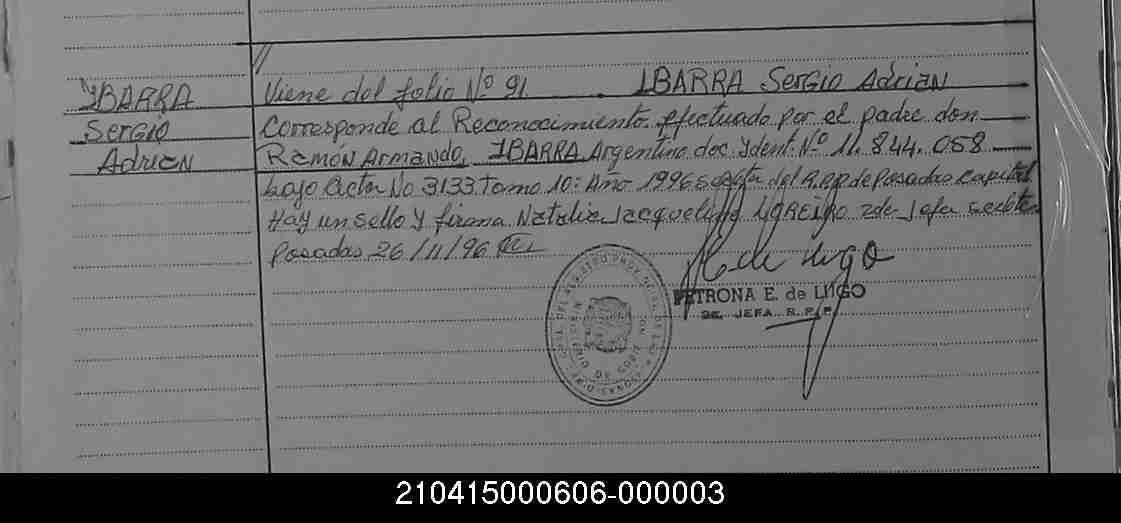 IBARRA
Sergio
Adrian
Viene del folio Nº 91. IBARRA Sergio Adrian
corresponde al Reconocimiento efectuado por el padre don
Ramón Armando, IBARRA Argentino doc Ydent. Nº 11.844.058
bajo Acta No 3133 Tomo 10: Año 1996 del R.P.P. de Posadas Capital
Hay un sello y firma Natalia Jacqueline 2de Jefa
Posadas 26/11/96
PETRONA E. de LUGO
2E. JEFA R.P.P.
210415000606-000003